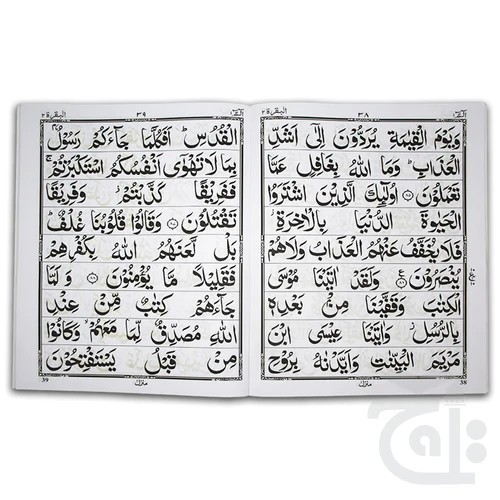 البقرة ٢
٣٨
وَيَوْمَ الْقِيٰمَةِ يُرَدُّوْنَ اِلٰٓى اَشَدِّ
الْعَذَابِ ؕ وَمَا اللّٰهُ بِغَافِلٍ عَمَّا
تَعْمَلُوْنَ ﴿٨٥﴾ اُولٰٓئِكَ الَّذِيْنَ اشْتَرَوُا
الْحَيٰوةَ الدُّنْيَا بِالْاٰخِرَةِ ؗ
فَلَا يُخَفَّفُ عَنْهُمُ الْعَذَابُ وَلَا هُمْ
يُنْصَرُوْنَ ﴿٨٦﴾ وَلَقَدْ اٰتَيْنَا مُوْسَى
الْكِتٰبَ وَقَفَّيْنَا مِنْۢ بَعْدِهٖ
بِالرُّسُلِ ؗ وَاٰتَيْنَا عِيْسَى ابْنَ
مَرْيَمَ الْبَيِّنٰتِ وَاَيَّدْنٰهُ بِرُوْحِ
منزل
38
البقرة ٢
٣٩
الْقُدُسِ ؕ اَفَكُلَّمَا جَآءَكُمْ رَسُوْلٌۢ
بِمَا لَا تَهْوٰٓى اَنْفُسُكُمُ اسْتَكْبَرْتُمْ ۚ
فَفَرِيْقًا كَذَّبْتُمْ ؗ وَفَرِيْقًا
تَقْتُلُوْنَ ﴿٨٧﴾ وَقَالُوْا قُلُوْبُنَا غُلْفٌ ؕ
بَلْ لَّعَنَهُمُ اللّٰهُ بِكُفْرِهِمْ
فَقَلِيْلًا مَّا يُؤْمِنُوْنَ ﴿٨٨﴾ وَلَمَّا
جَآءَهُمْ كِتٰبٌ مِّنْ عِنْدِ
اللّٰهِ مُصَدِّقٌ لِّمَا مَعَهُمْ ۙ وَكَانُوْا
مِنْ قَبْلُ يَسْتَفْتِحُوْنَ
منزل
39